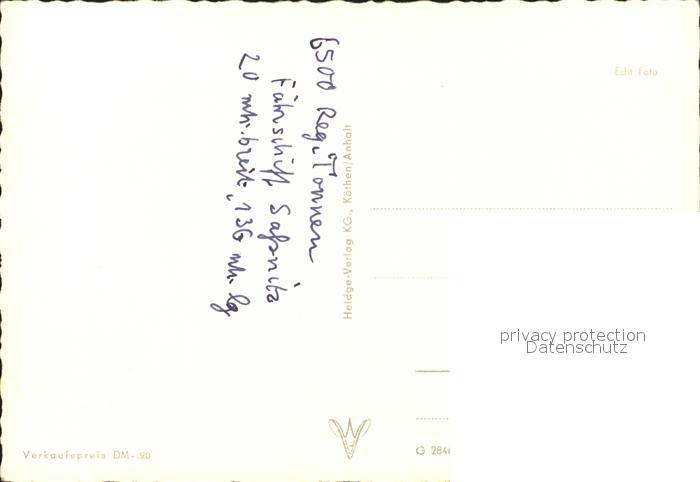 6500 Reg. Tonnen
Fährschiff Saßnitz
20 mtr. breit, 136 mtr. lg
Heldge-Verlag KG., Köthen/Anhalt
Echt Foto
privacy protection
Datenschutz
Verkaufspreis DM -.20
G 284